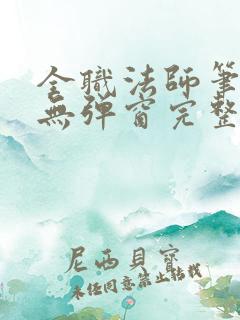 全職法師筆
無彈窗完整
尼西貝寶
未任同意禁止轉載